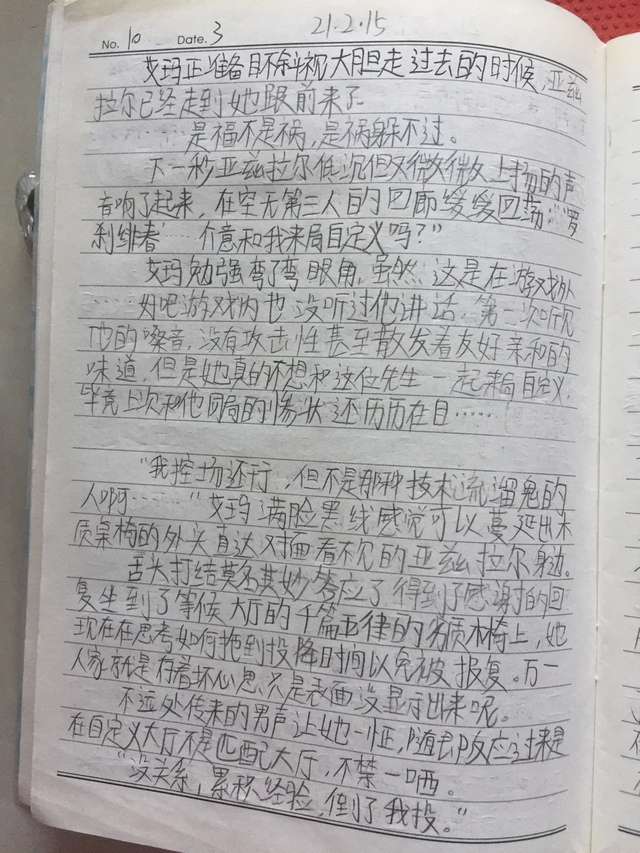 21.2.15
No. 10 Date. 3
艾玛正准备目不斜视大胆走过去的时候,亚兹
拉尔已经走到她跟前来了.
是福不是祸,是祸躲不过。
下一秒亚兹拉尔低沉但又微微上扬的声
音响了起来,在空无第三人的回廊缓缓回荡:“罗
刹绯春……介意和我来局自定义吗?”
艾玛勉强弯了弯眼角,虽然 这是在游戏外
……好吧游戏内也没听过他讲话.第二次听见
他的嗓音,没有攻击性甚至散发着友好亲和的
味道,但是她真的不想和这位先生一起来局自定义,
毕竟上次和他同局的惨状还历历在目……
“我控场还行,但不是那种技术流溜鬼的
人啊……“艾玛满脸黑线感觉可以蔓延出木
质桌椅的外头直达对面看不见的亚兹拉尔身边。
舌头打结莫名其妙答应了 得到了感谢的回
复坐到了等候大厅的千篇一律的劣质木椅上,她
现在在思考如何拖到投降时间以免被报复。万一
人家就是有着坏心思只是表面没显示出来呢。
不远处传来的男声让她一怔,随即反应过来是
在自定义大厅不是匹配大厅,不禁一哂。
“没关系,累积经验,倒了我投。”